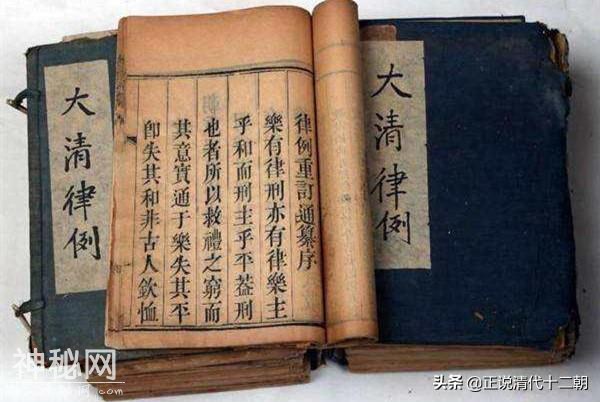 大清律例
律例重訂通纂序
樂有律刑亦有律樂主
乎和而刑主乎平葢刑
也者所以救禮之窮而
其意實通于樂失其平
卽失其和非古人欽恤
大清律例
神秘网
头条 @正说清代十二朝